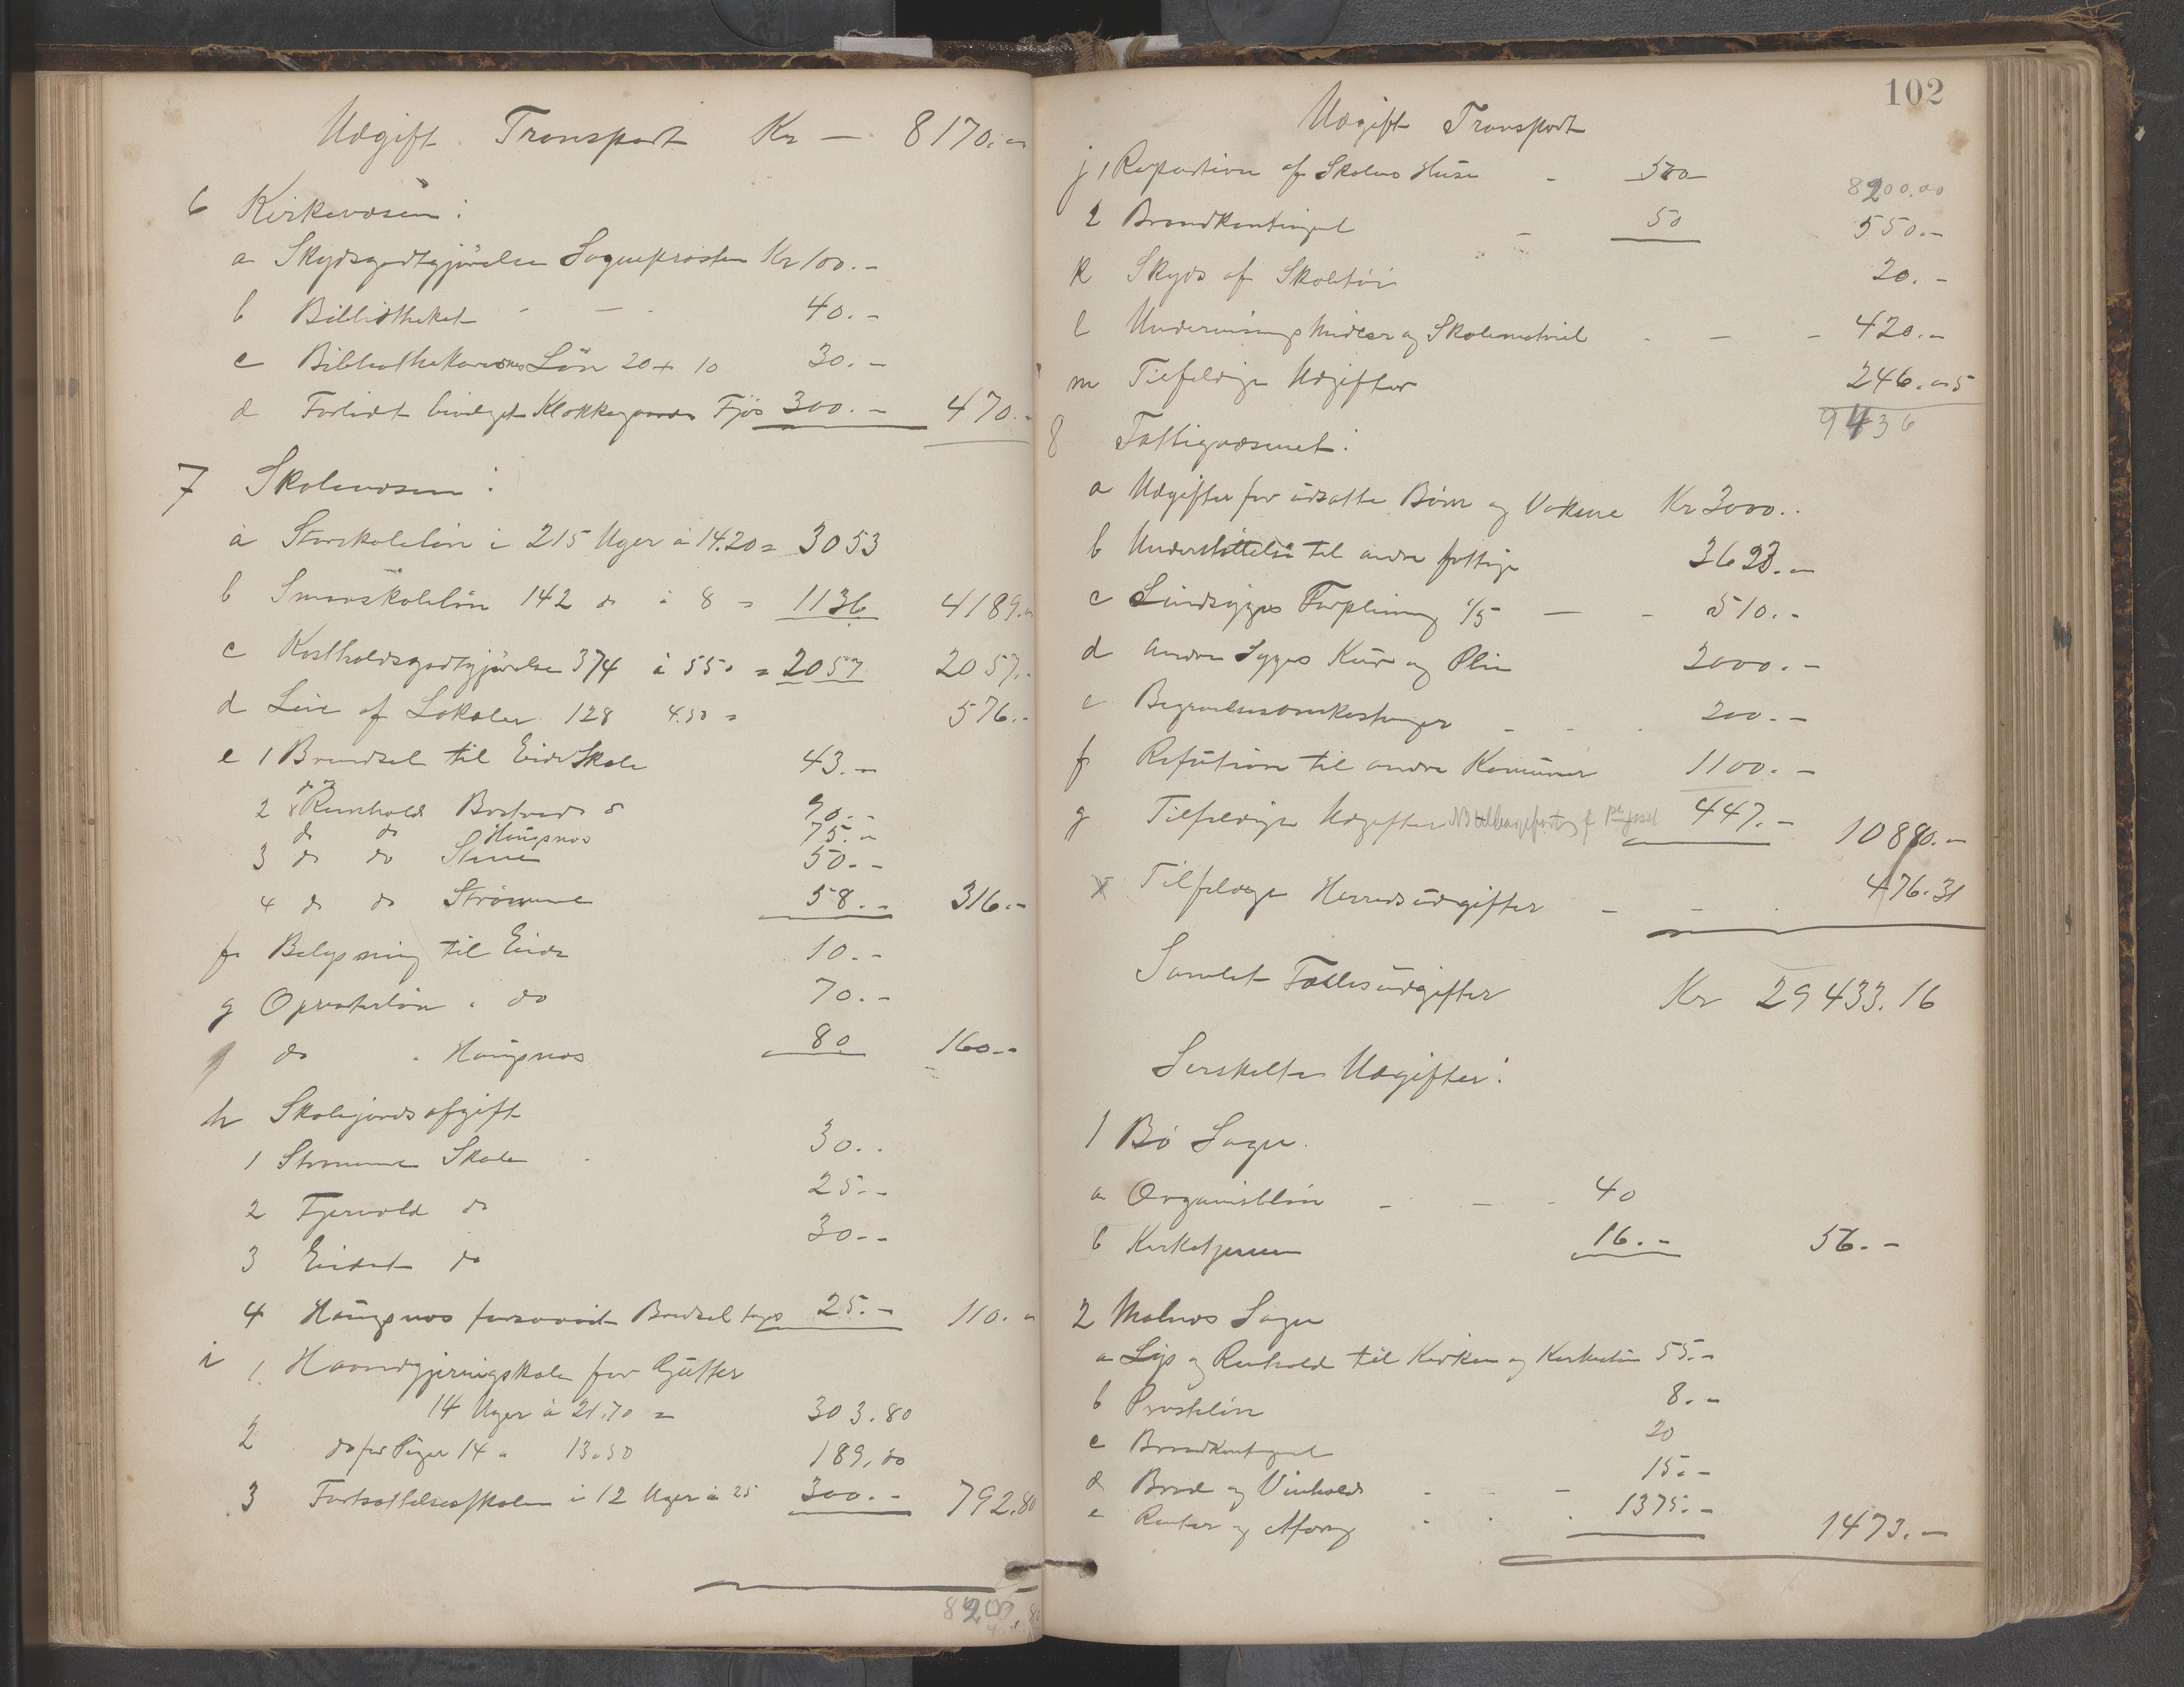 Udgift Transport Kr — 8170.-
6 Kirkevæsen:
a Skydsgodtgjørelse Sogneprosten Kr 100.-
b Bibliotheket - — - 40.-
c Bibliothekarernes Løn 20 + 10 30.-
d Forlodt bevilget Klokkergaards Fjøs 300.- 470.-
7 Skolevæsen:
a Storskoleløn i 215 Uger à 14.20 = 3053
b Smaaskoleløn 142 do à 8 = 1136 4189.-
c Kostholdsgodtgjørelse 374 à 550 = 2057 2057.-
d Leie af Lokaler 128 4.50 = 576.-
e 1 Brændsel til Eide Skole 43.-
2 Renhold Bostrand 90.-
do do Haugsnes 75.-
3 do do Stene 50.-
4 do do Strømme 58.- 316.-
f Belysning til Eide 10.-
g Opvarterløn - do 70.-
do - Haugsnes 80 160.-
h Skolejords afgift
1 Strømme Skole - 30..
2 Fjærvold do 25.-
3 Eidet do 30.-
4 Haugsnes forsaavidt Brædsel tages 25.- 110.-
i 1. Haandgjerningskole for Gutter
14 Uger à 21.70 = 303.80
2 do for Piger 14 " 13.50 189,00
3 Fortsættelsesskolen i 12 Uger à 25 300.- 792.80
102
Udgift Transport
j 1 Repartion af Skolens Huse - 500
8200.00
2 Brandkontingent - 50 550.-
k Skyds af Skoletøi 20.-
l Undervisningsmidler og Skolemateriel - — - 420.-
m Tilfeldige Udgifter 246.05
9436
8 Fattigvæsenet:
a Udgifter for udsatte Børn og Voksne Kr 3000..
b Understøttelse til andre fattige 3623.-
c Sindsyges Forpleining 1/5 — - 510.-
d Andre Syges Kur og Pleie 2000.-
e Begravelsesomkostninger - - . 200.-
f Refution til andre Komuner 1100.-
g Tilfeldige Udgifter 447.- 10880.-
x Tilfeldige Herredsudgifter - - . 476.31
Samlet Fællesudgifter Kr 29433.16
Serskelte Udgifter:
1 Bø Sogn.
a Organistløn - — - 40
b Kirketjenere 16.- 56.-
2 Malnes Sogn
a Lys og Renhold til Kirken og Kirkestue 55.-
b Provsteløn 8.-
c Brandkontingent 20
d Brød og Vinholds - - — 15.-
e Renter og Afdrag - . . 1375.- 1473.-